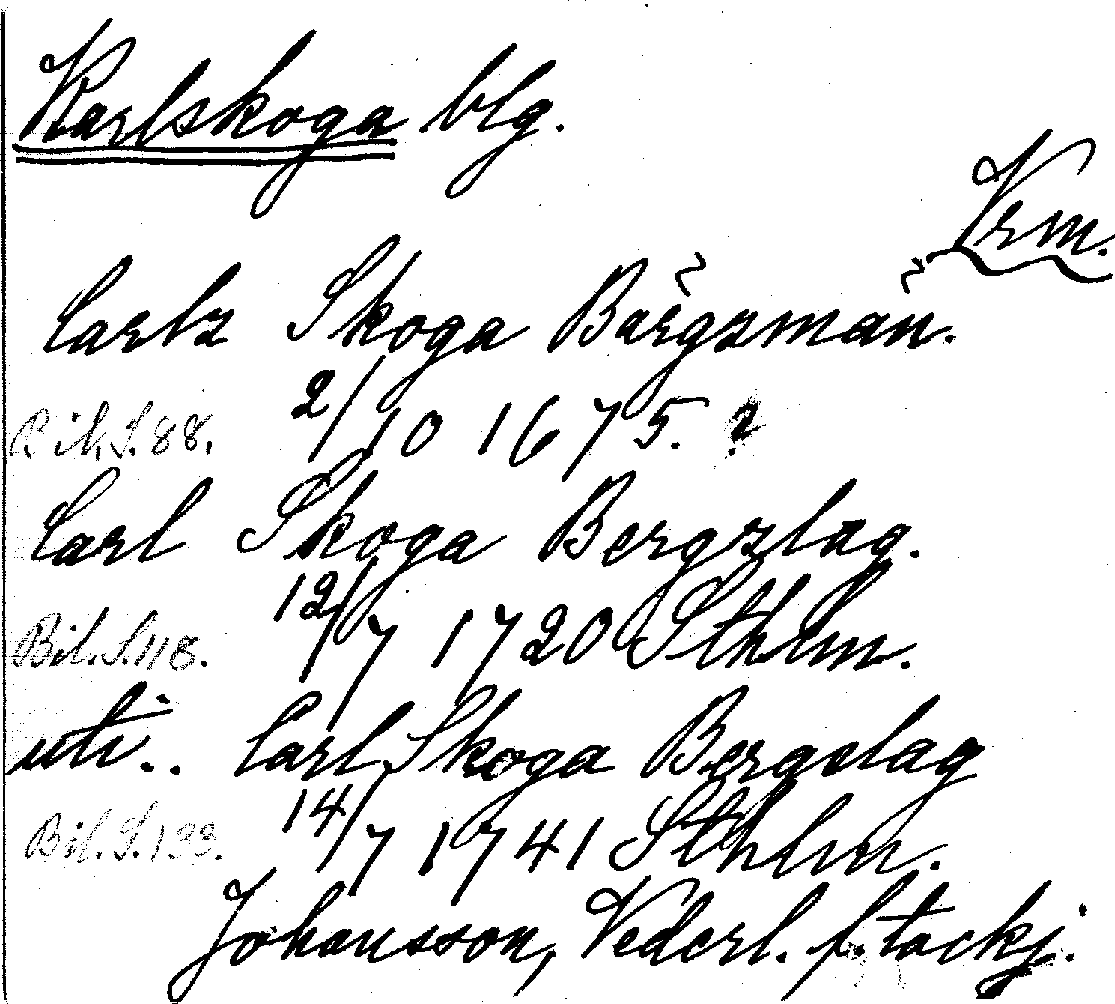 Karlskoga blg.
Vrm.
Carlz Skoga Bärgzmän.
Bil. S. 88. 2/10 1675. ?
Carl Skoga Bergzlag.
Bil. S. 118. 12/7 1720 Sthlm.
uti.. Carl Skoga Bergslag
Bil. S. 133. 14/7 1741 Sthlm.
Johansson, Vederl. f. tackj.